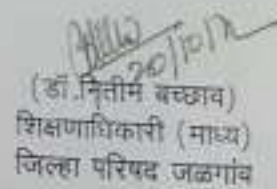 20/10/12
(डॉ.नितीन बच्छाव)
शिक्षणाधिकारी (माध्य)
जिल्हा परिषद जळगांव